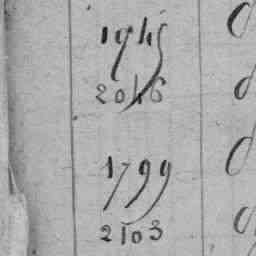 1945
2046
1799
2103